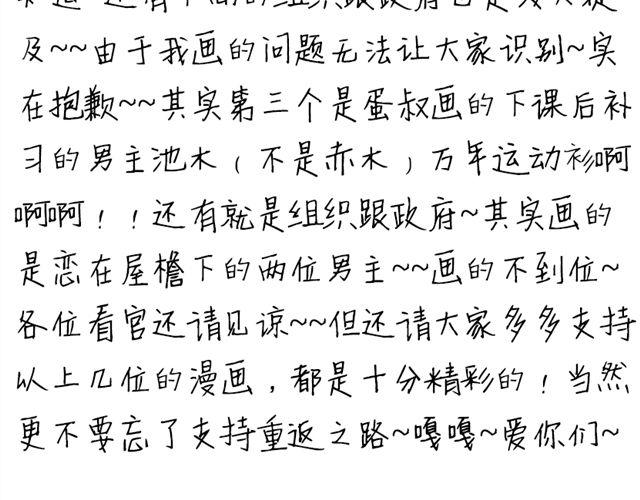 还有下面的组织跟政府也是没人提
及~~由于我画的问题无法让大家识别~实
在抱歉~~其实第三个是蛋叔画的下课后补
习的男主池木（不是赤木）万年运动衫啊
啊啊！！还有就是组织跟政府~其实画的
是恋在屋檐下的两位男主~~画的不到位~
各位看官还请见谅~~但还请大家多多支持
以上几位的漫画，都是十分精彩的！当然
更不要忘了支持重返之路~嘎嘎~爱你们~